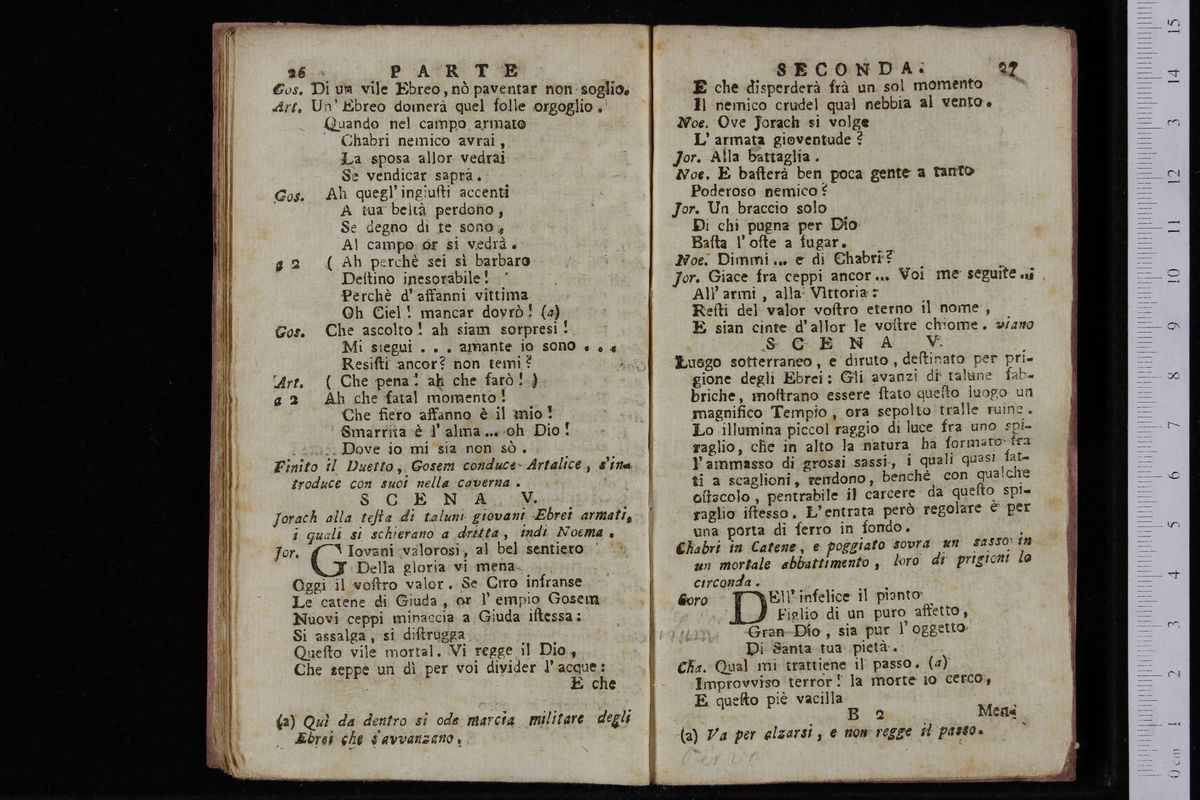 26 PARTE
Gos. Di un vile Ebreo, nò paventar non soglio.
Art. Un' Ebreo domerà quel folle orgoglio.
Quando nel campo armato
Chabri nemico avrai,
La sposa allor vedrai
Se vendicar saprà.
Gos. Ah quegl' ingiuſti accenti
A tua beltà perdono,
Se degno di te sono,
Al campo or si vedrà.
a 2 ( Ah perchè sei sì barbaro
Deſtino inesorabile!
Perchè d' affanni vittima
Oh Ciel! mancar dovrò! (a)
Gos. Che ascolto! ah siam sorpresi!
Mi siegui . . . amante io sono . . .
Resiſti ancor? non temi?
Art. ( Che pena! ah che farò! )
a 2 Ah che fatal momento!
Che fiero affanno è il mio!
Smarrita è l' alma... oh Dio!
Dove io mi sia non sò.
Finito il Duetto, Gosem conduce Artalice, s'in-
troduce con suoi nella caverna.
SCENA V.
Jorach alla teſta di taluni giovani Ebrei armati,
i quali si schierano a dritta, indi Noema.
Jor. GIovani valorosi, al bel sentiero
Della gloria vi mena
Oggi il voſtro valor. Se Ciro infranse
Le catene di Giuda, or l' empio Gosem
Nuovi ceppi minaccia a Giuda iſtessa:
Si assalga, si diſtrugga
Queſto vile mortal. Vi regge il Dio,
Che seppe un dì per voi divider l' acque:
E che
(a) Quì da dentro si ode marcia militare degli
Ebrei che s'avvanzano.
SECONDA. 27
E che disperderà frà un sol momento
Il nemico crudel qual nebbia al vento.
Noe. Ove Jorach si volge
L' armata gioventude?
Jor. Alla battaglia.
Noe. E baſterà ben poca gente a tanto
Poderoso nemico?
Jor. Un braccio solo
Di chi pugna per Dio
Baſta l' oſte a fugar.
Noe. Dimmi... e di Chabri?
Jor. Giace fra ceppi ancor... Voi me seguite...
All' armi, alla Vittoria:
Reſti del valor voſtro eterno il nome,
E sian cinte d' allor le voſtre chiome. viano
SCENA V.
Luogo sotterraneo, e diruto, deſtinato per pri-
gione degli Ebrei: Gli avanzi di talune fab-
briche, moſtrano essere ſtato queſto luogo un
magnifico Tempio, ora sepolto tralle ruine.
Lo illumina piccol raggio di luce fra uno spi-
raglio, che in alto la natura ha formato fra
l' ammasso di grossi sassi, i quali quasi fat-
ti a scaglioni, rendono, benchè con qualche
oſtacolo, pentrabile il carcere da queſto spi-
raglio iſtesso. L' entrata però regolare è per
una porta di ferro in fondo.
Chabri in Catene, e poggiato sovra un sasso in
un mortale abbattimento, loro di prigioni lo
circonda.
Coro DEll' infelice il pianto
Figlio di un puro affetto,
Gran Dio, sia pur l' oggetto
Di Santa tua pietà.
Cha. Qual mi trattiene il passo. (a)
Improvviso terror! la morte io cerco,
E queſto piè vacilla
B 2 Men-
(a) Va per alzarsi, e non regge il passo.
0 cm 1 2 3 4 5 6 7 8 9 10 11 12 13 14 15